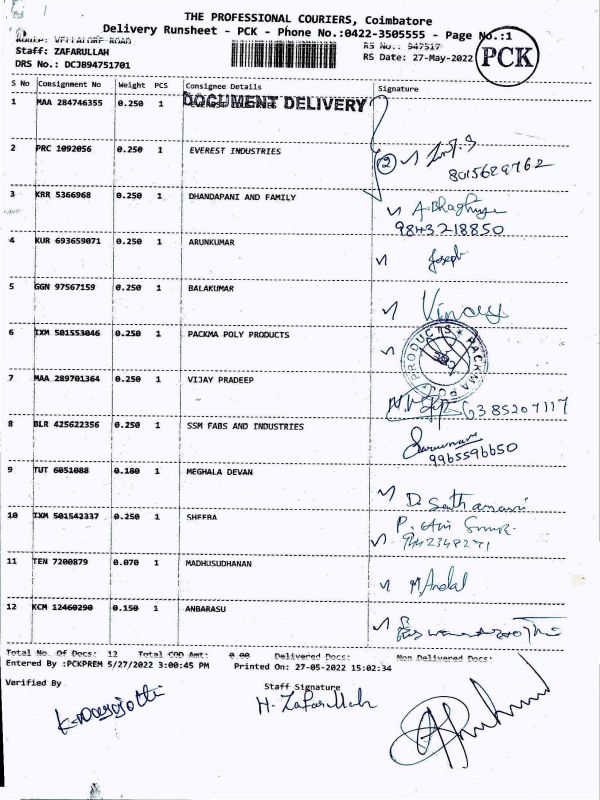 THE PROFESSIONAL COURIERS, Coimbatore
Delivery Runsheet - PCK - Phone No.:0422-3505555 - Page No.:1
Route: VELLALORE ROAD RS No.: 947517
Staff: ZAFARULLAH RS Date: 27-May-2022 PCK
DRS No.: DCJB94751701
S No Consignment No Weight PCS Consignee Details Signature
1 MAA 284746355 0.250 1 EVEREST INDUSTRIES DOCUMENT DELIVERY
2 PRC 1092056 0.250 1 EVEREST INDUSTRIES 2
8015629762
3 KRR 5366968 0.250 1 DHANDAPANI AND FAMILY
9843218850
4 KUR 693659071 0.250 1 ARUNKUMAR Joseph
5 GGN 97567159 0.250 1 BALAKUMAR Vinoy
6 IXM 501553046 0.250 1 PACKMA POLY PRODUCTS
PACKMA POLY PRODUCTS
7 MAA 289701364 0.250 1 VIJAY PRADEEP 6385207117
8 BLR 425622356 0.250 1 SSM FABS AND INDUSTRIES
9965596650
9 TUT 6051088 0.180 1 MEGHALA DEVAN
10 IXM 501542337 0.250 1 SHEEBA
11 TEN 7200879 0.070 1 MADHUSUDHANAN
12 KCM 12460290 0.150 1 ANBARASU
Total No. Of Docs: 12 Total COD Amt: 0.00 Delivered Docs: Non Delivered Docs:
Entered By :PCKPREM 5/27/2022 3:00:45 PM Printed On: 27-05-2022 15:02:34
Verified By Staff Signature
H. Zafarullah